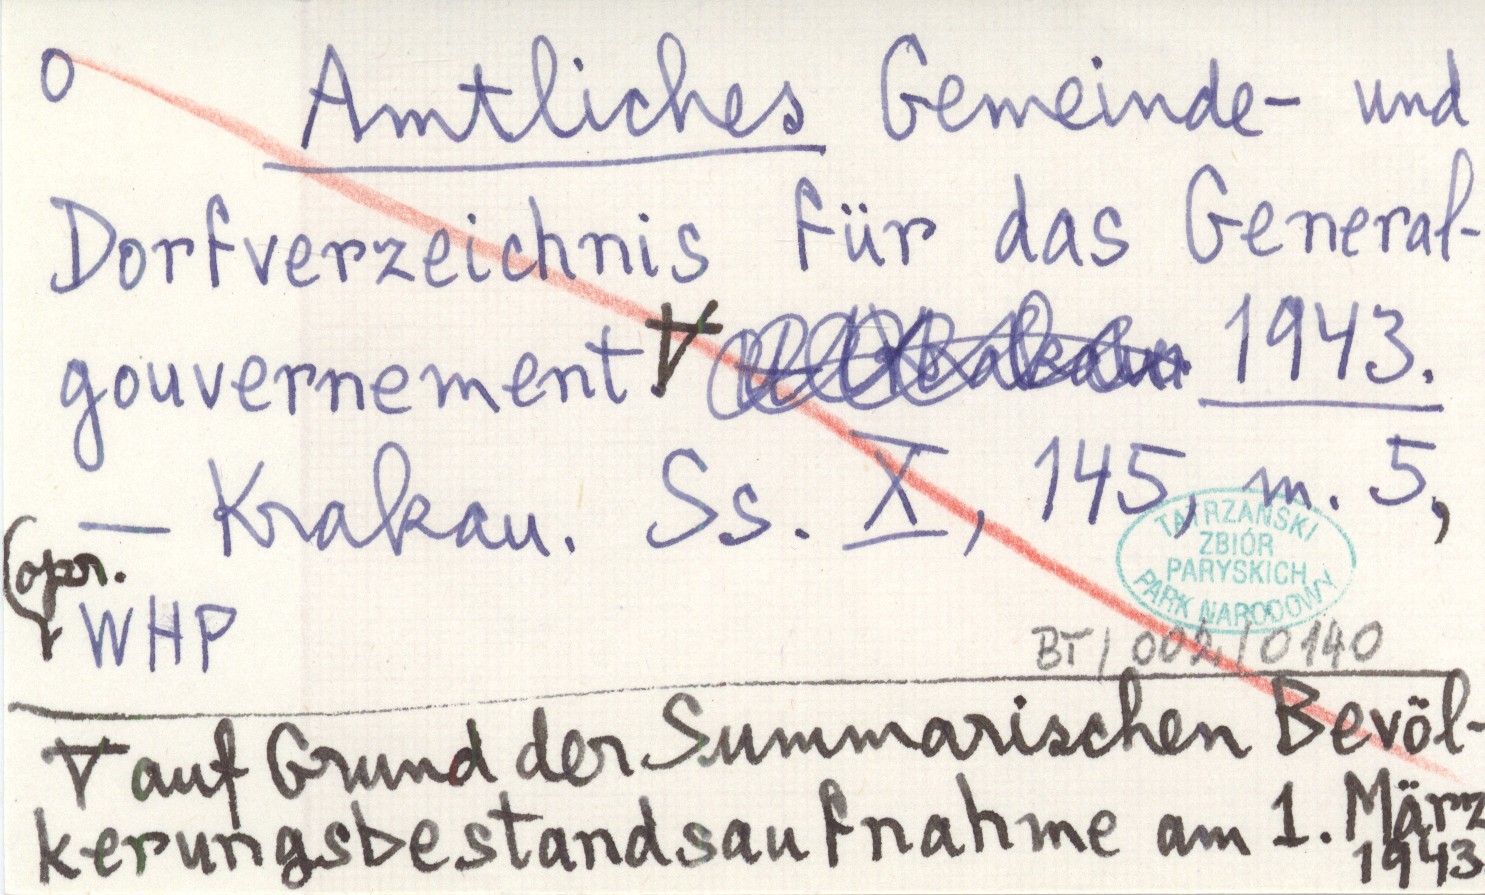 o Amtliches Gemeinde- und
Dorfverzeichnis für das General-
gouvernement 1943.
— Krakau. Ss. X, 145, m. 5,
opr.
WHP
TATRZAŃSKI
ZBIÓR
PARYSKICH
PARK NARODOWY
BT/002/0140
auf Grund der Summarischen Bevöl-
kerungsbestandsaufnahme am 1. März
1943